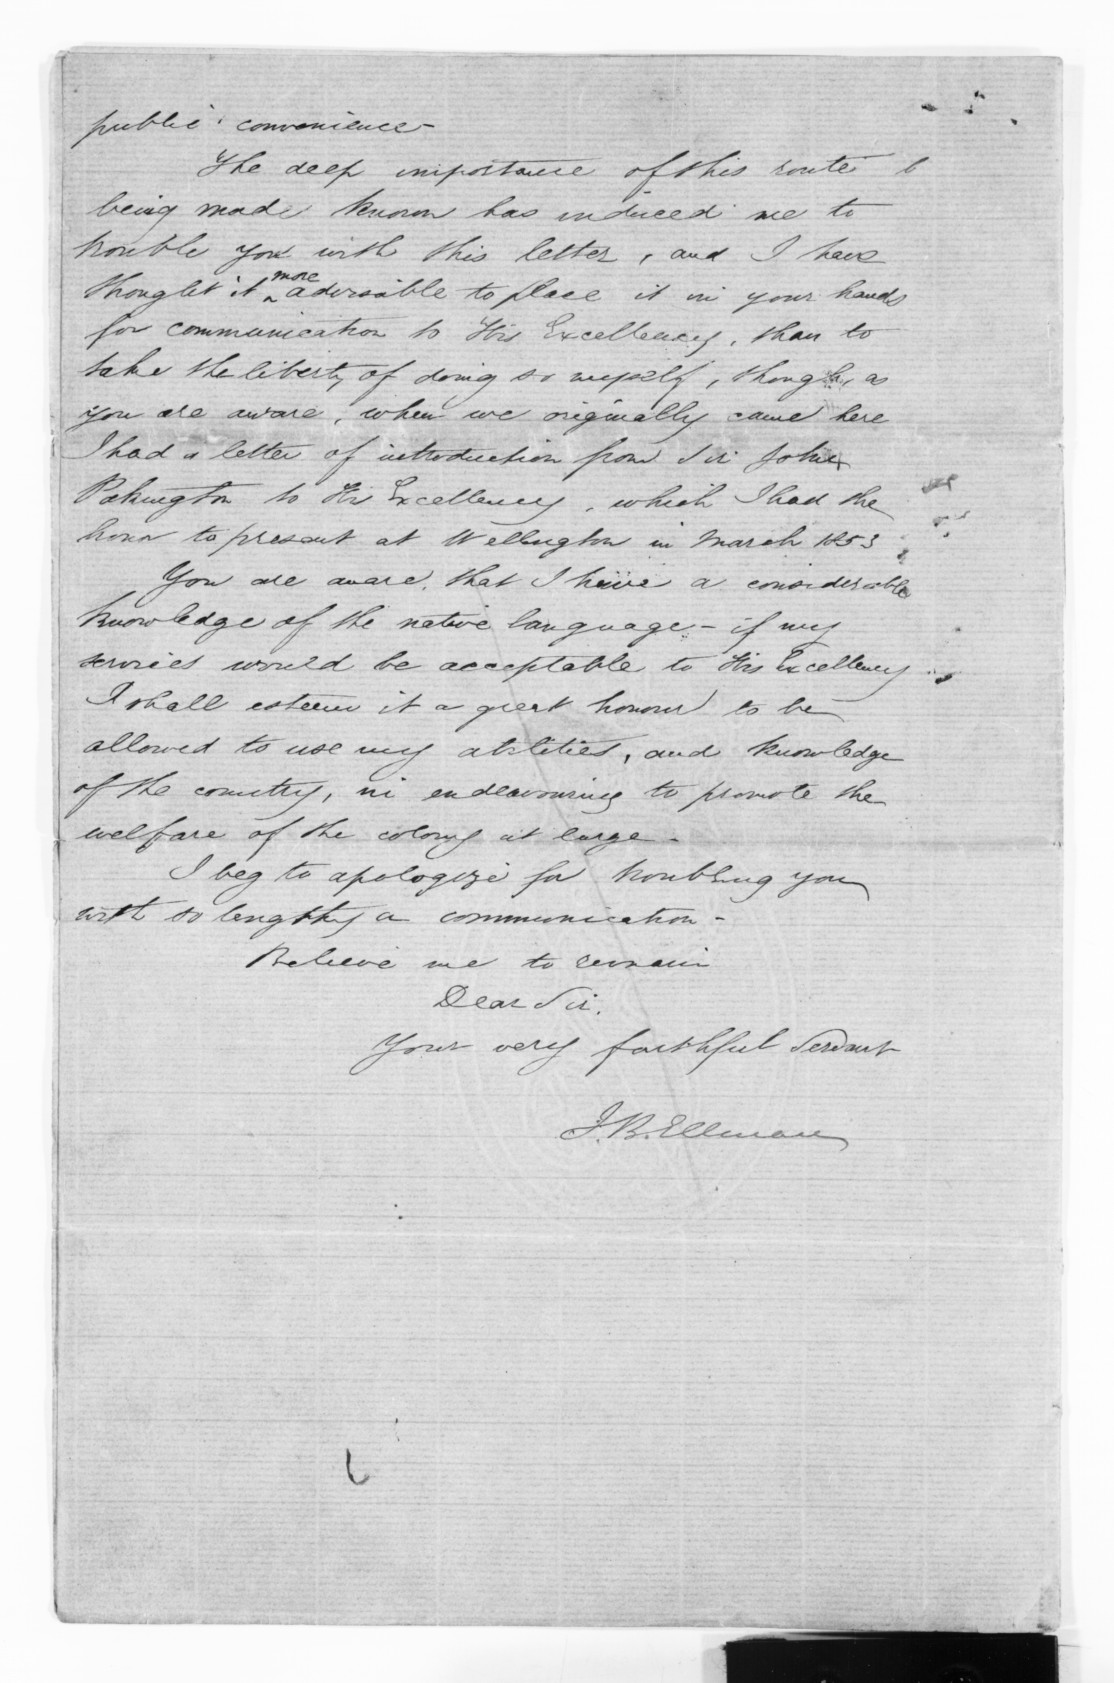 public convenience -
The deep importance of this route
being made known has induced me to
trouble you with this letter, and I have
thought it more advisable to place it in your hands
for communication to His Excellency, than to
take the liberty of doing so myself, though, as
you are aware, when we originally came here
I had a letter of introduction from Sir John
Pakington to His Excellency, which I had the
honor to present at Wellington in March 1853
You are aware that I have a considerable
knowledge of the native language - if my
services would be acceptable to His Excellency
I shall esteem it a great honour to be
allowed to use my abilities, and knowledge
of the country, in endeavouring to promote the
welfare of the colony at large -
I beg to apologize for troubling you
with so lengthy a communication -
Believe me to remain
Dear Sir.
Your very faithful Servant
J. B. Ellman